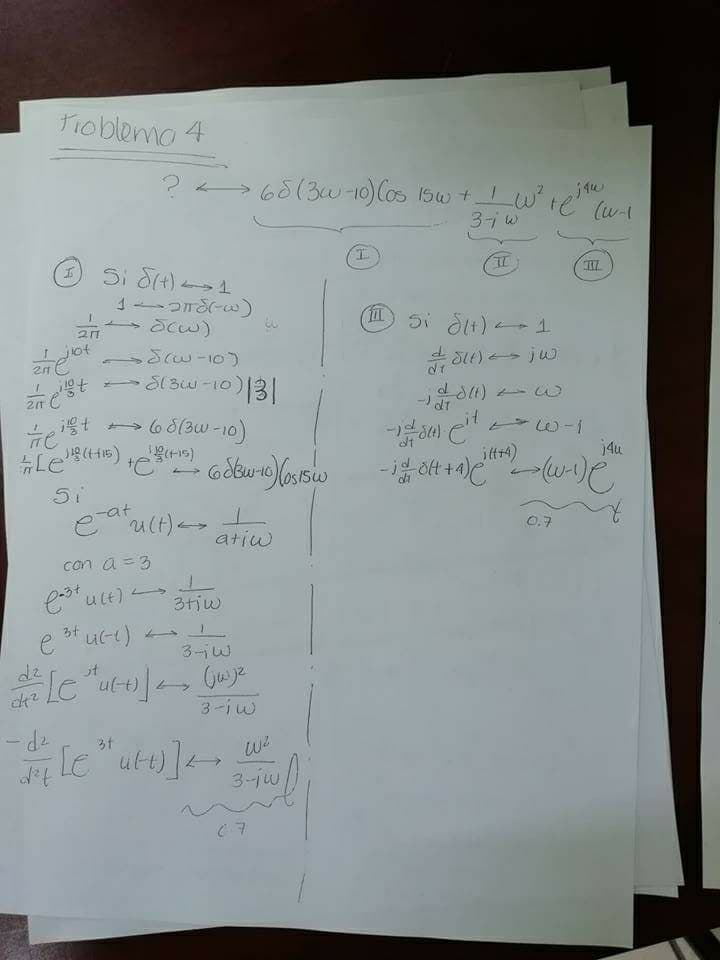 Problema 4
? ↔ 6δ(3ω-10)Cos 15ω + 1/(3-jω) ω² + e^{j4ω} (ω-1
I II III
I Si δ(t) ↔ 1
1 ↔ 2πδ(-ω)
1/2π ↔ δ(ω)
1/2π e^{j10t} ↔ δ(ω-10)
1/2π e^{j10/3 t} ↔ δ(3ω-10)|3|
1/π e^{j10/3 t} ↔ 6δ(3ω-10)
1/π [e^{j10/3(t+15)} + e^{j10/3(t-15)} ↔ 6δ(3ω-10)Cos15ω
Si
e^{-at} u(t) ↔ 1/(a+jω)
con a = 3
e^{-3t} u(t) ↔ 1/(3+jω)
e^{3t} u(-t) ↔ 1/(3-jω)
d²/dt² [e^{3t} u(-t)] ↔ (jω)²/(3-jω)
-d²/d²t [e^{3t} u(-t)] ↔ ω²/(3-jω)
0.7
III Si δ(t) ↔ 1
d/dt δ(t) ↔ jω
-j d/dt δ(t) ↔ ω
-j d/dt δ(t) · e^{jt} ↔ ω-1
-j d/dt δ(t+4) e^{j(t+4)} ↔ (ω-1) e^{j4ω}
0.7